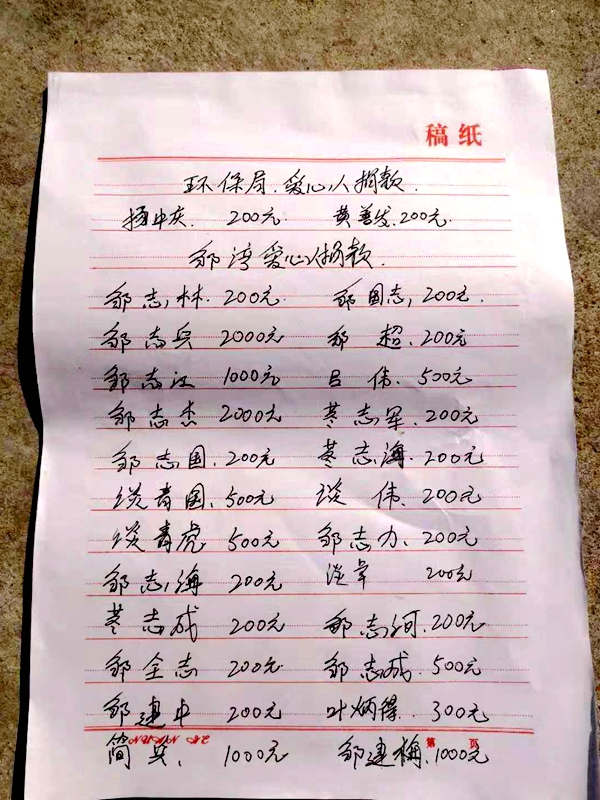 稿纸
环保局.爱心人捐款.
杨中灰. 200元 黄善发.200元.
邹湾爱心人捐款.
邹志林.200元. 邹国志,200元.
邹志兵 2000元 邹 超.200元
邹志江 1000元 吕 伟.500元
邹志杰 2000元 志军.200元
邹志国.200元 志海.200元
谈青国.500元 谈 伟.200元
谈青虎 500元 邹志力.200元
邹志海 200元 谈军 200元
志成 200元 邹志河.200元
邹全志 200元 邹志成.500元
邹建中 200元 叶炳得. 300元
简其. 1000元 邹建梅.1000元
第 页